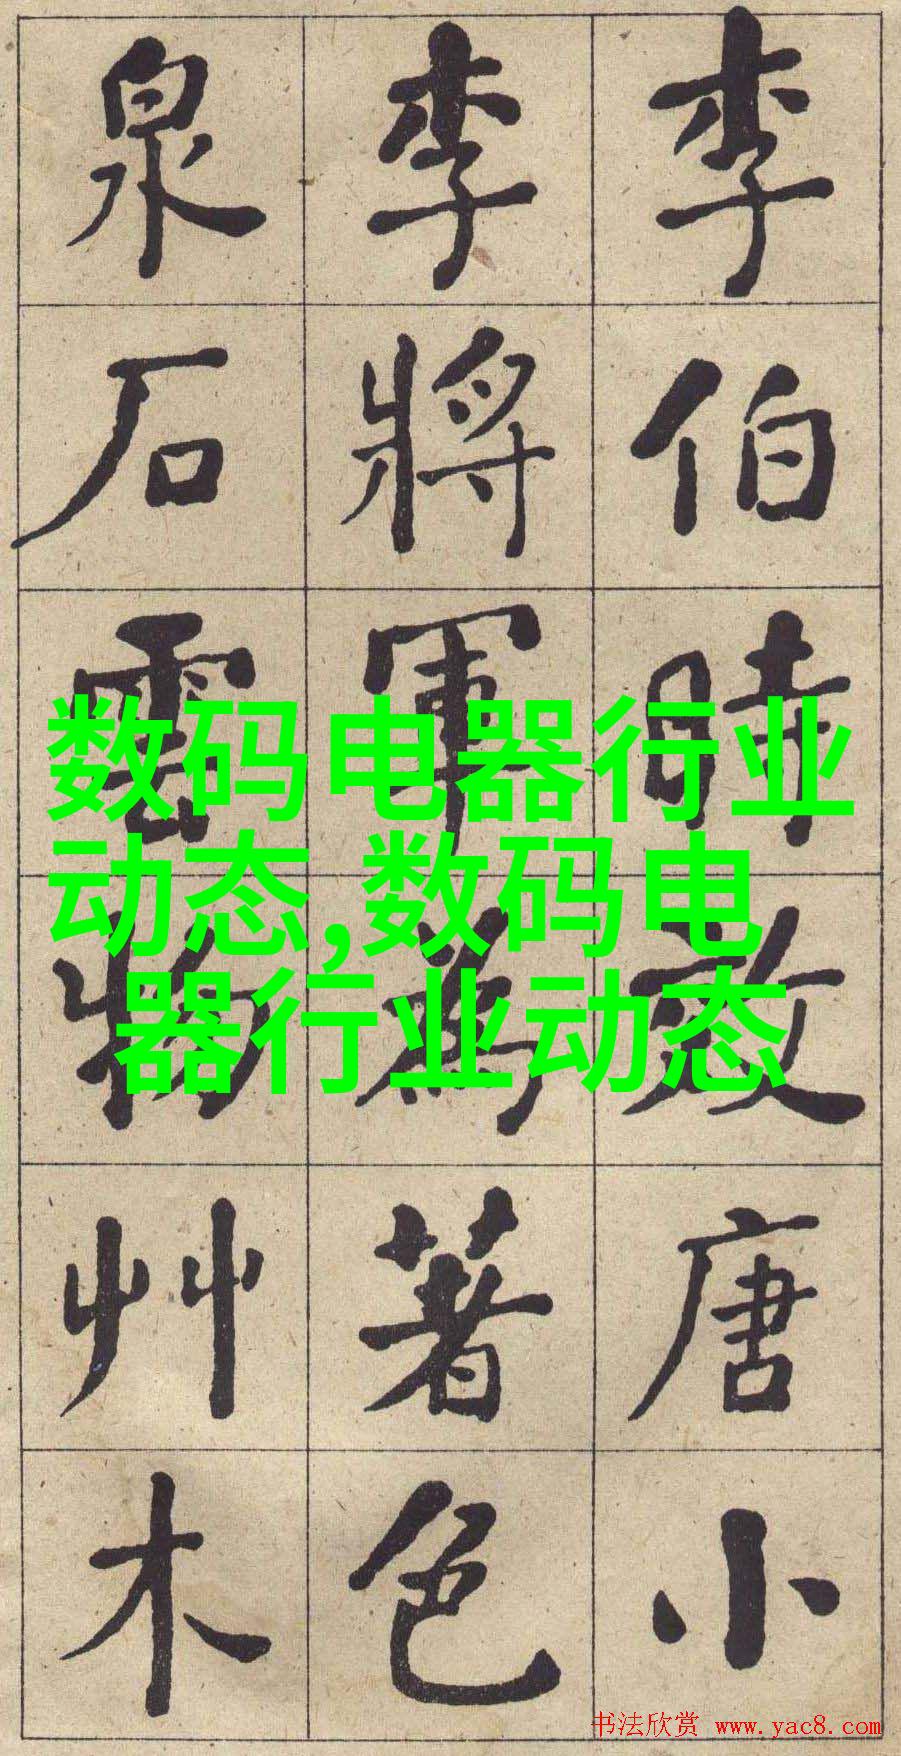 李伯時效唐小
李將軍為著色
泉石雲物艸木
数码电器行业
动态,数码电
器行业动态
书法欣赏 www.yac8.com